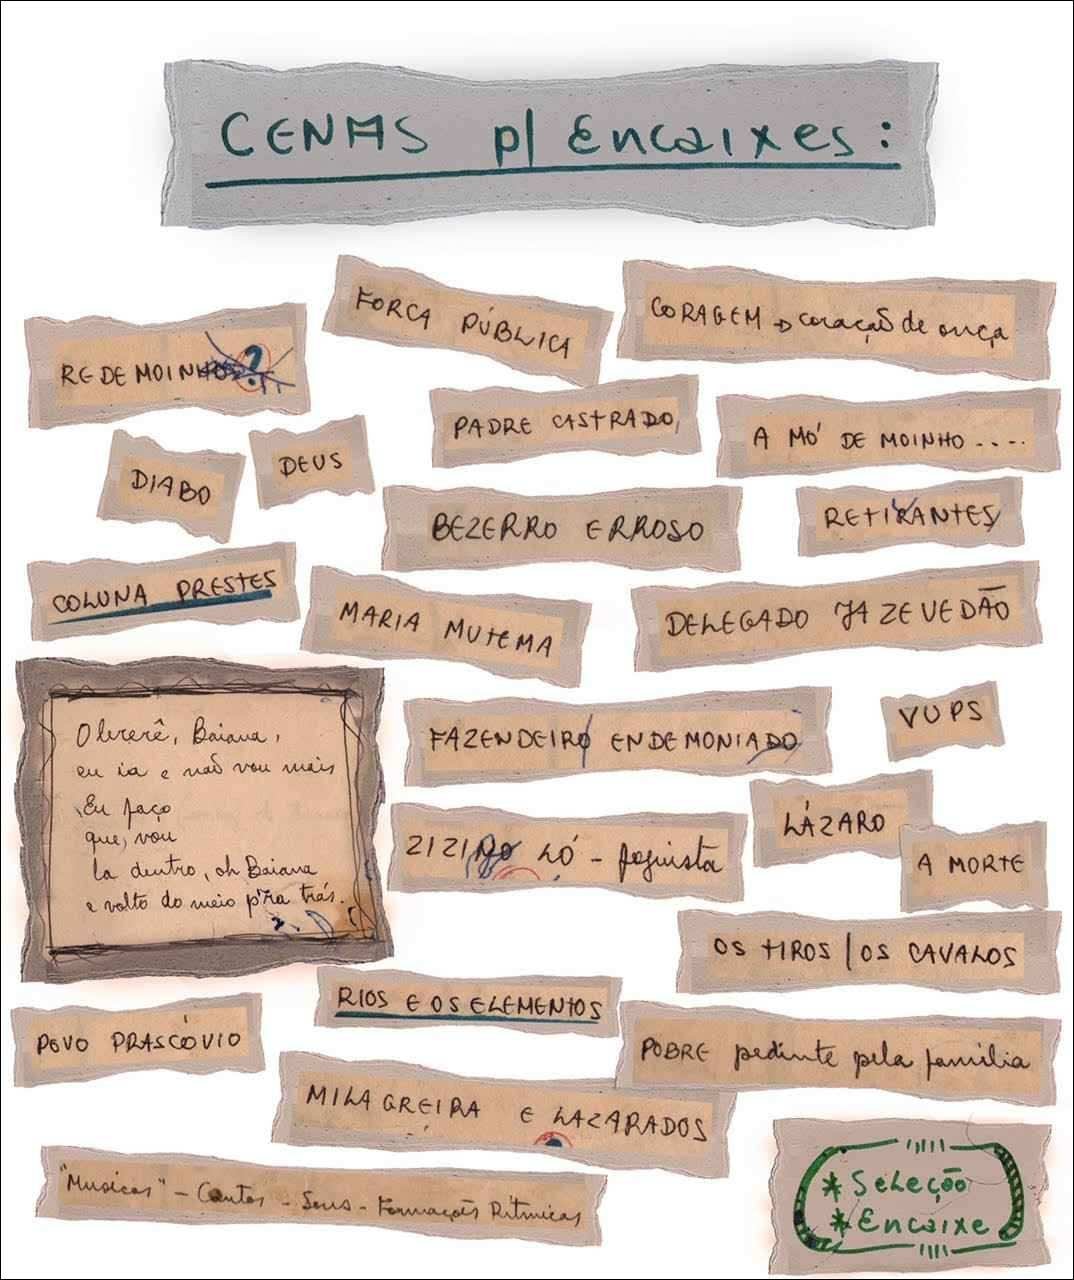 CENAS p/ Encaixes:
FORÇA PÚBLICA
CORAGEM → coração de onça
REDEMOINHO ?
PADRE CASTRADO
A MÓ DE MOINHO ....
DIABO
DEUS
BEZERRO ERROSO
RETIRANTES
COLUNA PRESTES
MARIA MUTEMA
DELEGADO JAZEVEDÃO
Olererê, Baiana,
eu ia e não vou mais
Eu faço
que, vou
la dentro, oh Baiana
e volto do meio p'ra trás.
FAZENDEIRO ENDEMONIADO
VUPS
LÁZARO
ZIZINO LÓ - foguista
A MORTE
OS TIROS | OS CAVALOS
RIOS E OS ELEMENTOS
POVO PRASCÓVIO
POBRE pedinte pela família
MILAGREIRA E LAZARADOS
"Musicas" - Cantos - Sons - Formações Ritmicas
* Seleção
* Encaixe